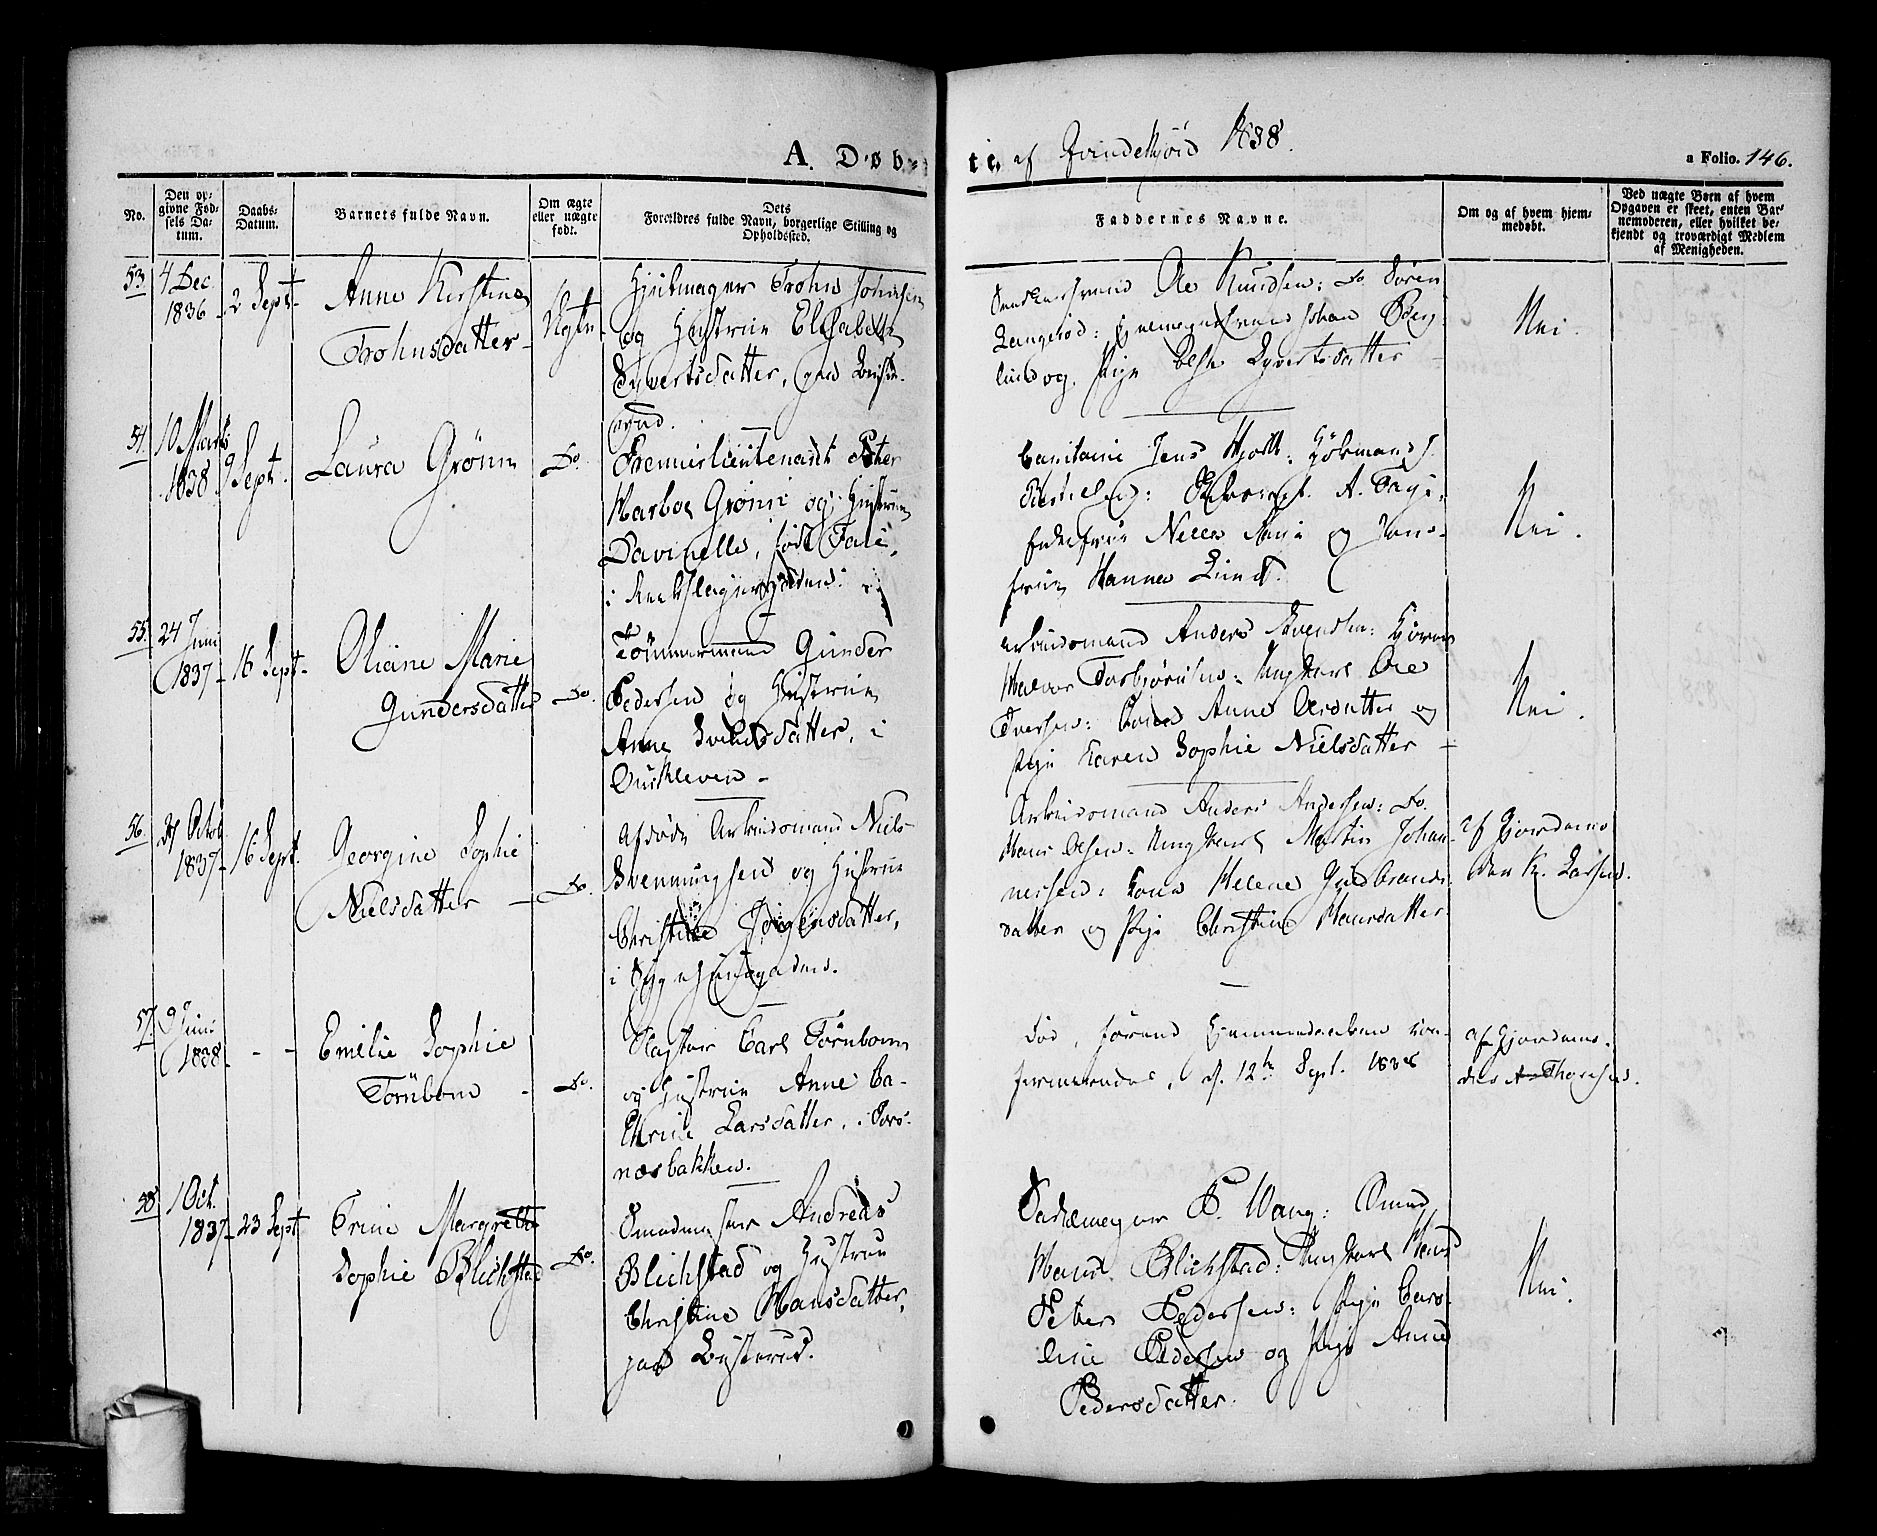 A. Døbte. af Qvindekjød 1838.
a Folio. 146.
No.
Den opgivne Fødsels Datum.
Daabs-Datum.
Barnets fulde Navn.
Om ægte eller uægte født.
Dets Forældres fulde Navn, borgerlige Stilling og Opholdssted.
Faddernes Navne.
Om og af hvem hjemmedøbt.
Ved uægte Børn af hvem Opgaven er skeet, enten Barnemoderen, eller hvilket bekjendt og troværdigt Medlem af Menigheden.
53.
4 Dec.
1836
2 Sept.
Anne Kirstine
Trohnsdatter
Ægte
Hjulmager Trohn Johnsen
og Hustrue Elisabeth
Syvertsdatter,
Ole Knudsen: Do. Søren
Langerød: Johan Berg
lund og Pige Else Syvertsdatter
Nei.
54.
10 Marts
1838
9 Sept.
Laura Grønn
Do.
Premierlieutenant Peter
Marboe Grønn og Hustrue
Davinelle, født Falé,
i Rebslagergaden.
Capitaine Jens Hjorth:
A.
og Jom-
frue Hanna Lund.
Nei.
55.
24 Juni
1837
16 Sept.
Oliane Marie
Gundersdatter
Do.
Tømmermand Gunder
Pedersen og Hustrue
Anne Svendsdatter, i
Buskleven
Arbeidsmand Anders Svendsen:
Halvor Torbjørnsen: Ungkarl Ole
Iversen: Kone Anne Olesdatter og
Pige Karen Sophie Nielsdatter
Nei.
56.
Octob.
1837
16 Sept.
Georgine Sophie
Nielsdatter
Do.
Afdøde Arbeidsmand Niels
Svennungsen og Hustrue
Christine Jørgensdatter,
i
Arbeidsmand Anders Andersen: Do.
Hans Olsen: Ungkarl Martin Johan-
nessen: Kone Helene Gudbrands-
datter og Pige Christine Hansdatter
af Gjordemo-
der K. Larsen.
57.
9 Juni
1838
- -
Emilie Sophie
Törnbom
Do.
Carl Törnbom
og Hustrue Anne Ca-
thrine Larsdatter, i Tors-
næsbakken.
død, førend Hjemmedaaben con-
firmeredes, d. 12te Sept. 1838
af Gjordemo-
der A. Thoresen.
58.
1 Oct.
1837
23 Sept.
Trine Margrethe
Sophie Blichstad
Do.
Smedmester Andreas
Blichstad og Hustrue
Christine Hansdatter,
paa Lysterud.
Sadelmager P. Wang: Smed
Hans Blichstad: Ungkarl Hans
Peter Pedersen: Pige Caro-
line Pedersen og Pige Anne
Pedersdatter.
Nei.